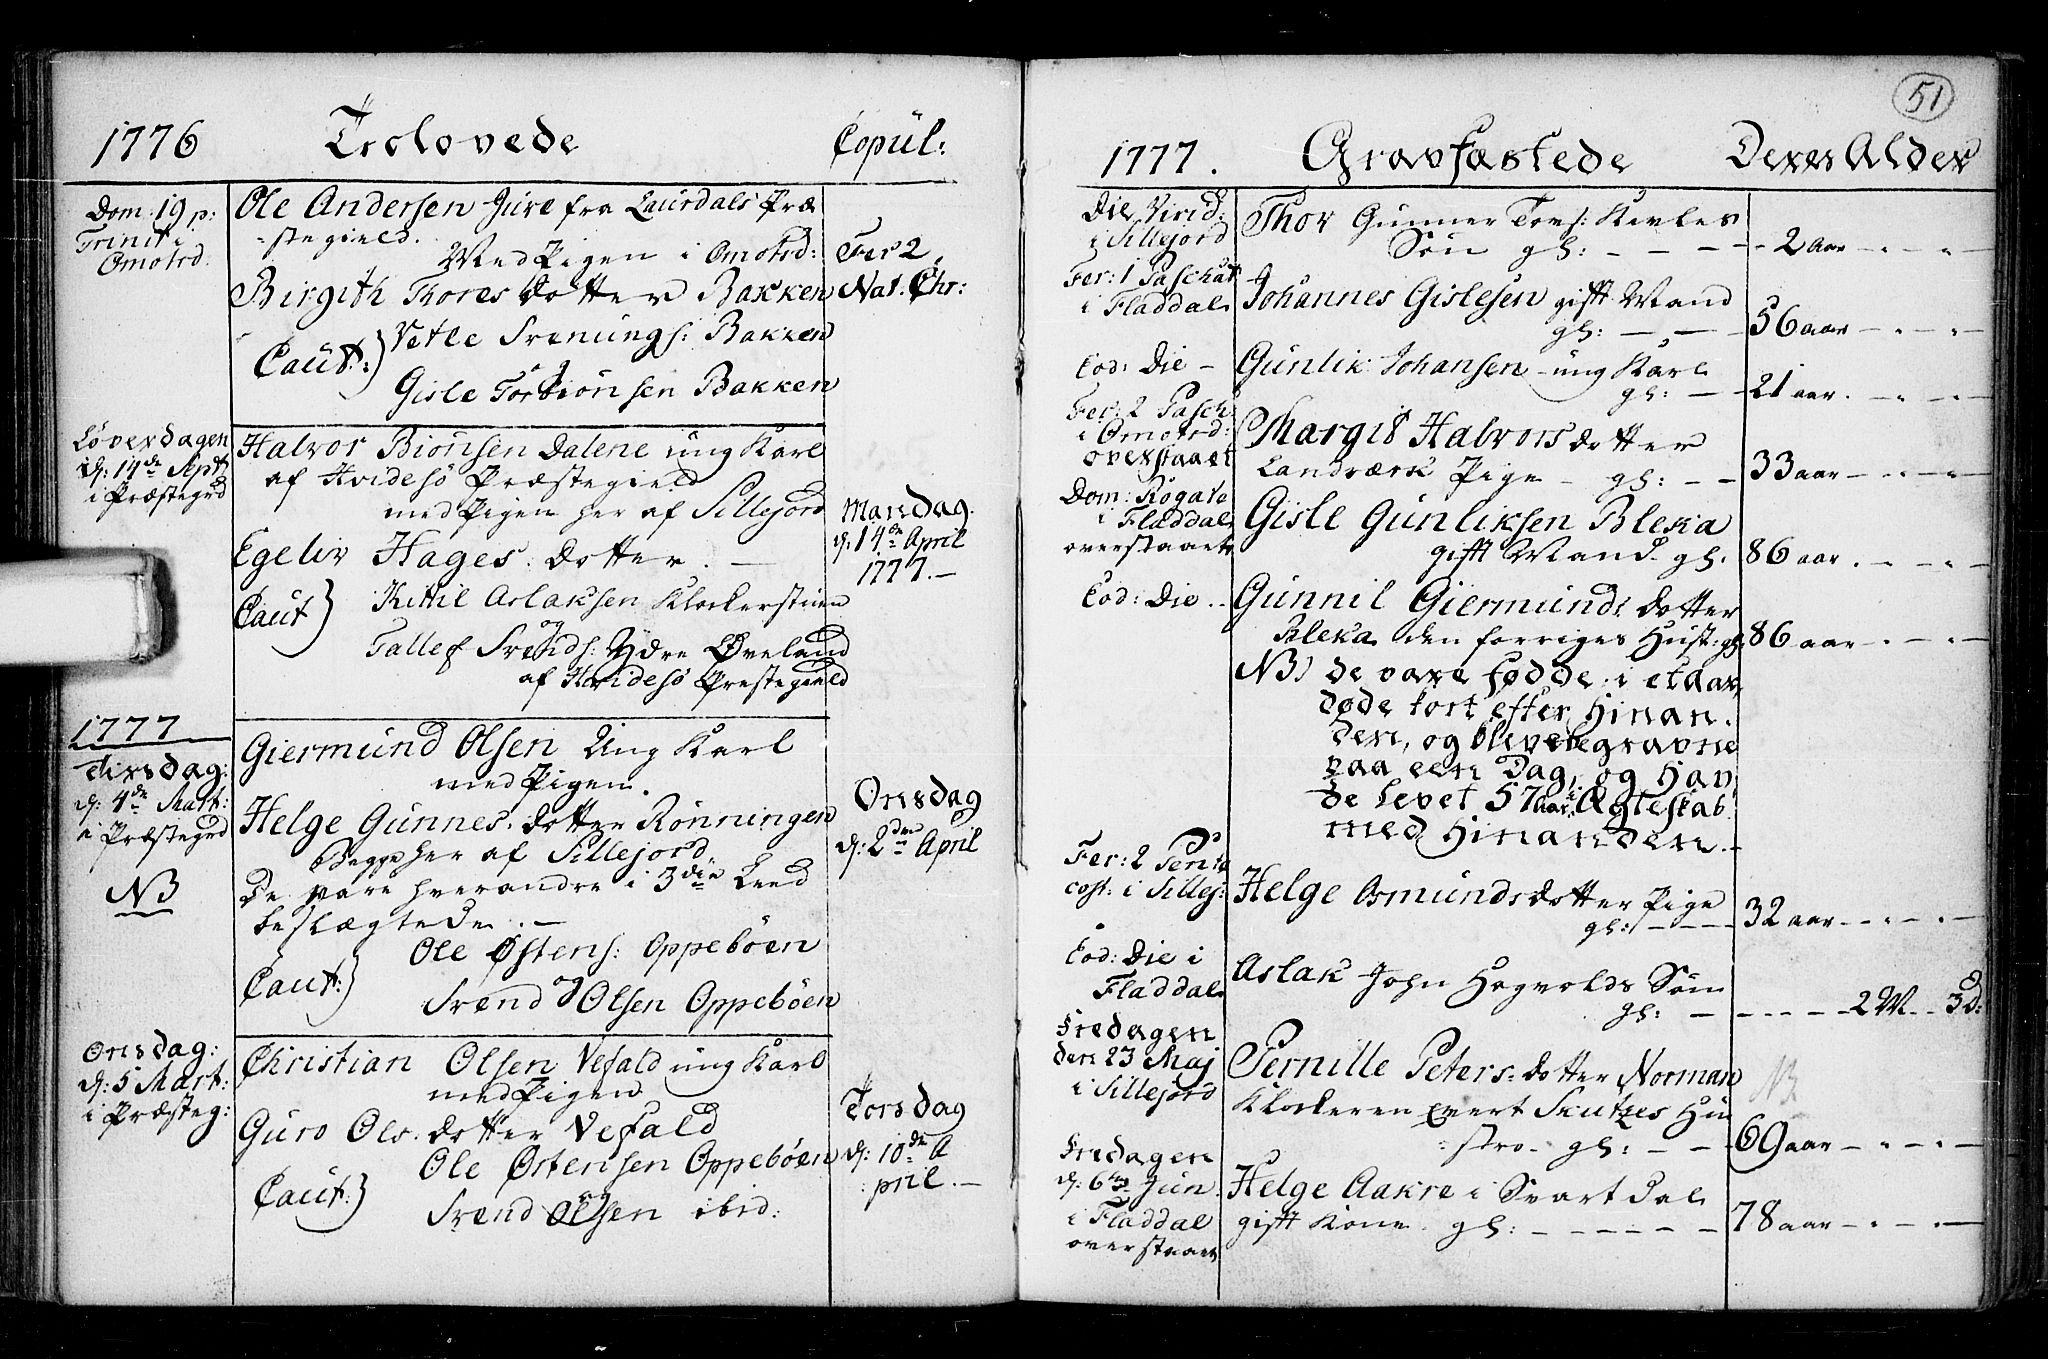 1776 Trolovede Copül:
Dom: 19 p:
Trinit: i
Omotrd.
Ole Andersen Jure fra Laurdals Præ
=stegield.
Med Pigen i Omotrd:
Birgith Thores dotter Bakken
Caut:) Vetle Svenungs: Bakken
og
Gisle Torbiönsen Bakken
Fer 2
Nat. Chr:
Löverdagen
d: 14de Sept:
i Præstegrd
Halvor Biönsen Dalene ung Karl
af Hvidesö Præstegield
med Pigen her af Sillejord
Egeliv Hages dotter. —
Caut) Kittil Aslaksen Klockerstuen
og
Tallef Svends: Ydre Öveland
af Hvidesö Prestegield
Mandag
d: 14de April
1777. —
1777
Tirsdag:
d: 4de Mart:
i Præstegrd
NB
Giermund Olsen Ung Karl
med Pigen.
Helge Gunnes. dotter Rönningen
begge her af Sillejord
De vare hverandre i 3die Leed
beslægtede. —
Caut:) Ole Östens: Oppeböen
og
Svend Olsen Oppeböen
Onsdag
d: 2den April
Onsdag:
d: 5 Mart:
i Præsteg:
Christian Olsen Vefald ung Karl
med Pigen
Guro Ols. dotter Vefald
Caut:) Ole Östensen Oppeböen
og
Svend Olsen ibid:
Torsdag
d: 10de A
pril. —
51
1777. Gravfæstede Deres Alder
Die Virid:
i Sillejord
Thor Gunner Tovs: Kivles
Sön gl: — — — 2 Aar
Fer: 1 Paschat
i Fladdal
Johannes Gislesen gifft Mand
gl: — — 56 aar
Eod: Die —
Gunlik Johansen ung Karl
gl: — — 21 aar.
Fer: 2 Pasch:
i Omotrd:
overstaaet
Margit Halvors dotter
Landværk Pige — gl: — — 33 aar
Dom: Rogate
i Fladdal
overstaaet
Gisle Gunliksen Bleka
gifft Mand gl. 86 aar.
Eod: Die..
Gunnil Giermunds dotter
Bleka den forriges Hust: gl: 86 aar
NB) de vare födde i et aar,
döde kort efter hinan.
den, og bleve begravne
paa een Dag, og hav.
de levet 57 aar i Ægteskab
med hinanden. —
Fer: 2 Pente
cost: i Sillej:
Helge Osmunds dotter Pige
gl: — — — 32 aar
Eod: Die i
Fladdal
Aslak John Hegvolds Sön
gl: — — — — 2 M. 3 d:
Fredagen
den 23 Maj
i Sillejord
Pernille Peters= dotter Norman
Klockeren Evert Skutzes Hu
stro — gl: — — 69 aar
NB
Fredagen
d: 6te Jun.
i Fladdal
overstaaet
Helge Aakre i Svartdal
gifft Kone. gl: — — — — 78 aar